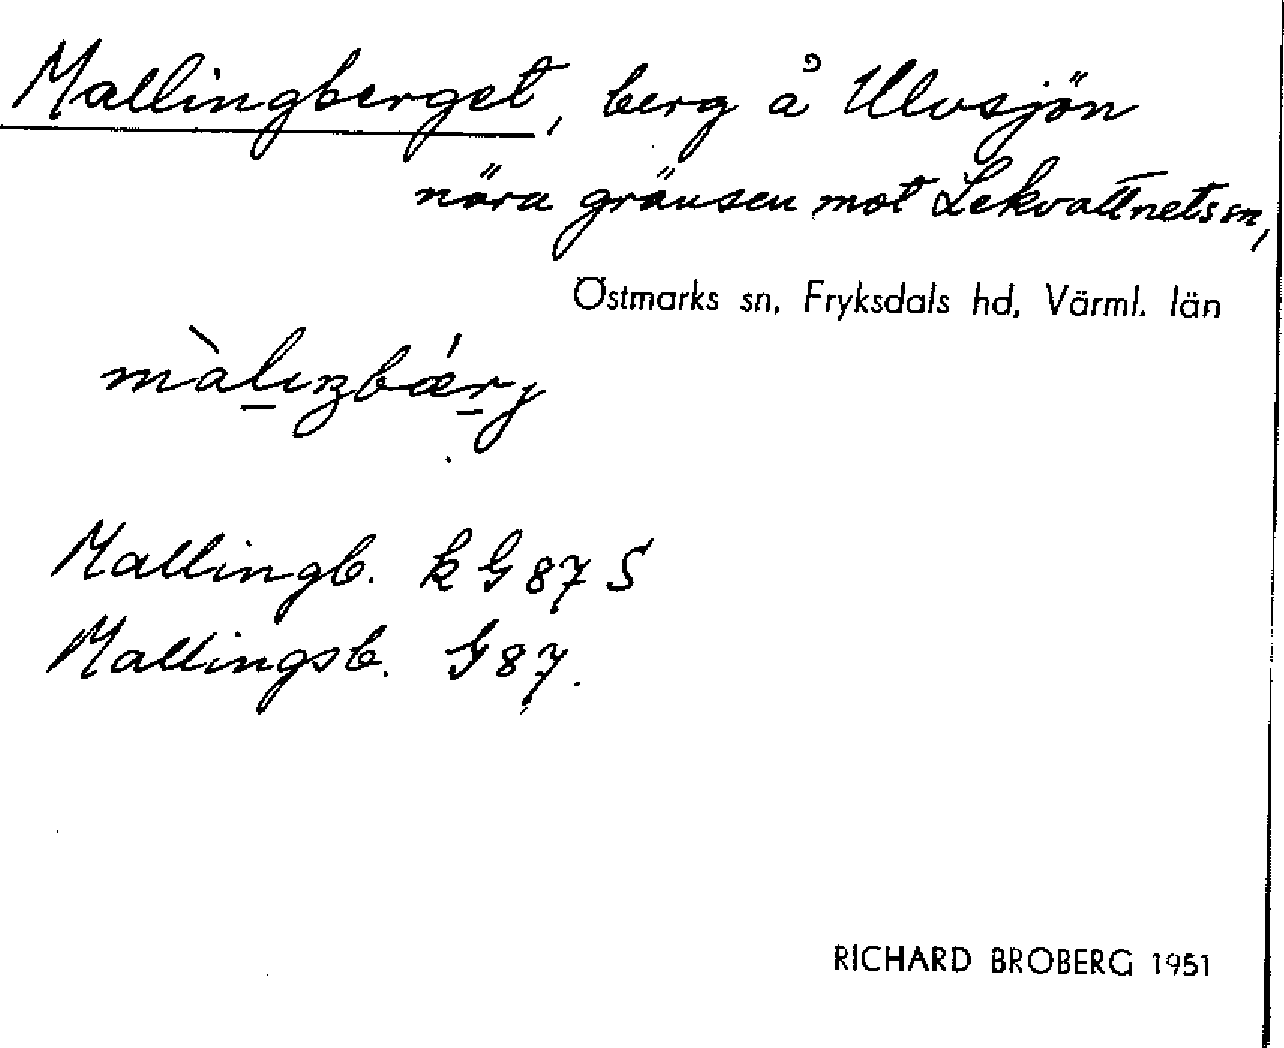 Mallingberget, berg å Ulvsjön
nära gränsen mot Lekvattnets sn,
Östmarks sn, Fryksdals hd, Värml. län
màlıŋbǽrj
Mallingb. k G 87 S
Mallingsb. G 87.
RICHARD BROBERG 1951